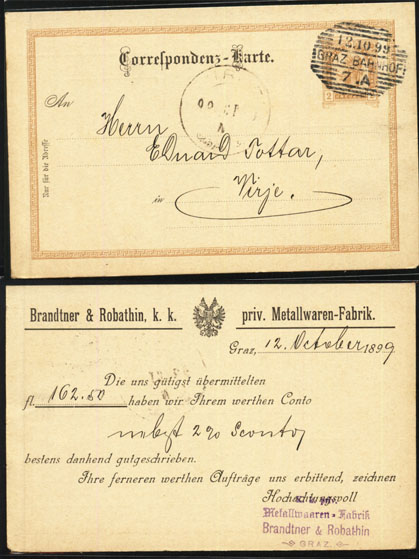 Correspondenz-Karte.
12.10.99
GRAZ BAHNHOF
7.A
An
Herrn
Eduard Tottar,
in Virje.
Nur für die Adresse
Brandtner & Robathin, k. k. priv. Metallwaren-Fabrik.
Graz, 12. October 1899
Die uns gütigst übermittelten
fl. 162.50 haben wir Ihrem werthen Conto
nebst 2% Sconto
bestens dankend gutgeschrieben.
Ihre ferneren werthen Aufträge uns erbittend, zeichnen
Hochachtungsvoll
Metallwaaren-Fabrik
Brandtner & Robathin
GRAZ